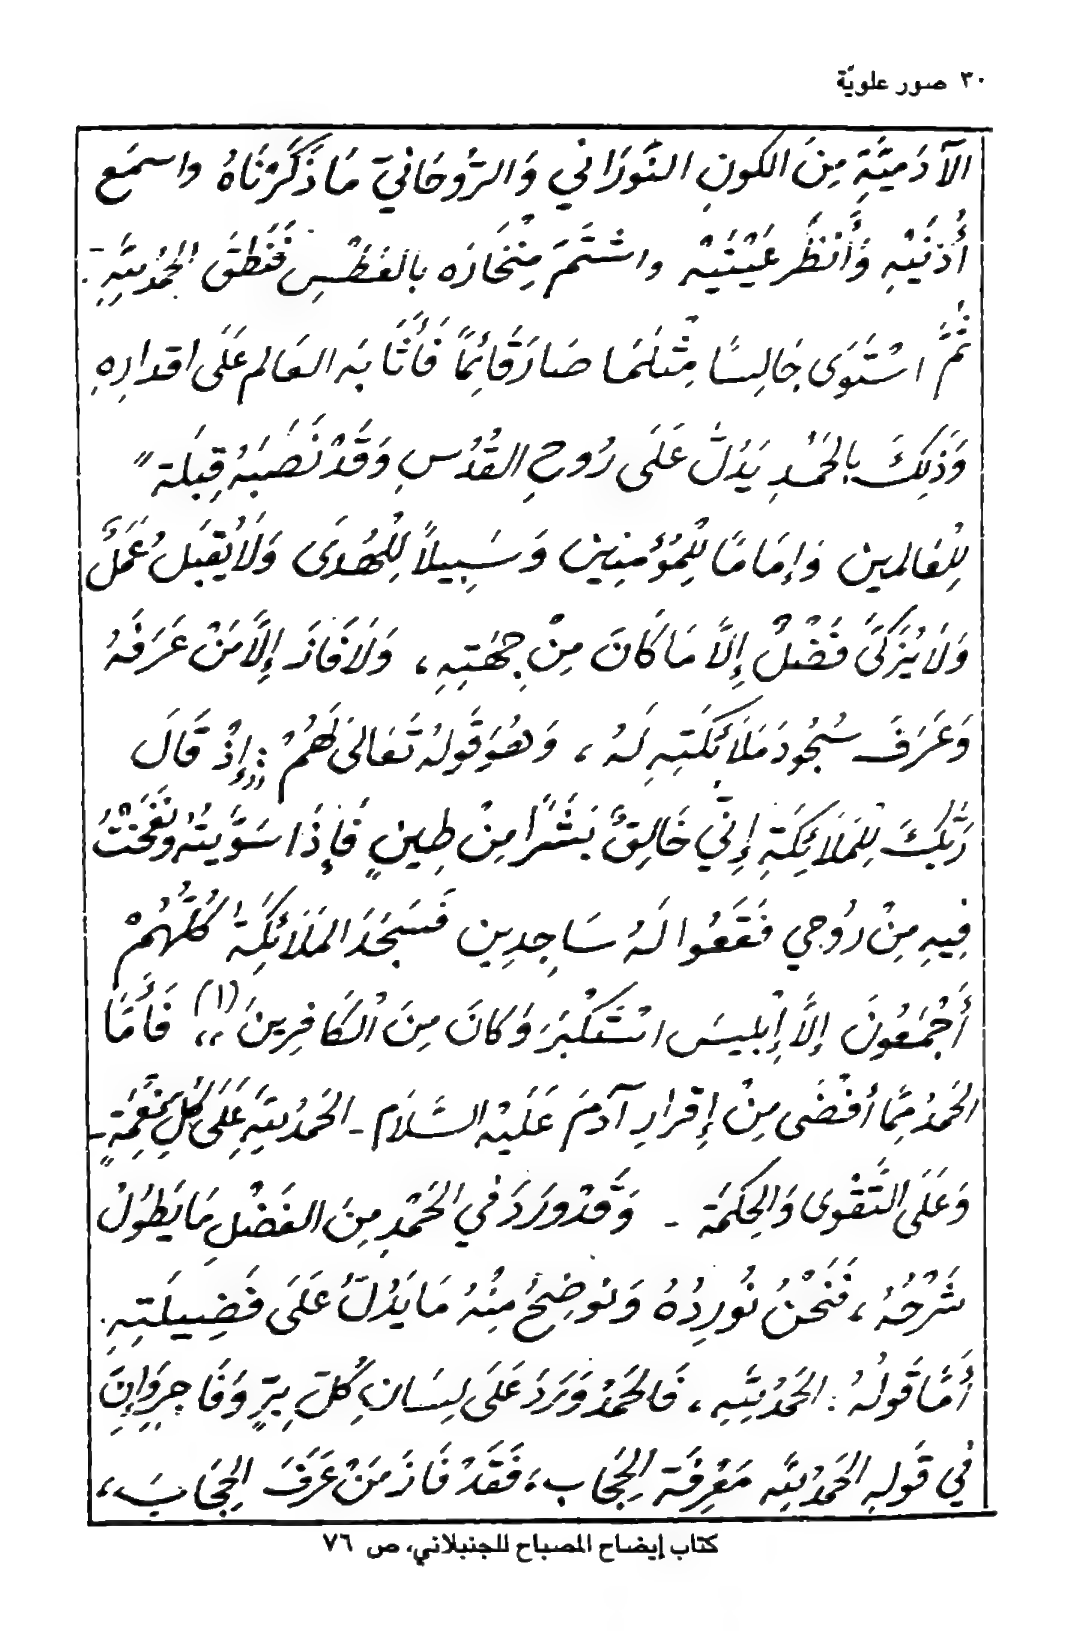 ٣٠ صور علويّة
الآدَمِيَّةِ مِنَ الكَونِ النَّورَانِي وَالرُّوحَانِيَّ مَا ذَكَرْنَاهُ واسمَع
أُذنَيْهِ وَأَنْظَرَ عَيْنَيْهِ واشْتَمَّ مِنْخَارَه بِالعَطْسِ فَنَطَقَ الحَمْدُ لِلَّهِ.
ثُمَّ اسْتَوَى جَالِسًا مِثْلَمَا صَارَ قَائِمًا فَأَثَابَه العَالم عَلَى اقدارِهِ
وَذَلِكَ بِالحَمْدِ يَدُلُّ عَلَى رُوحِ القُدُسِ وَقَدْ نَصَبَهُ قِبلَةً
لِلْعَالمين وَإِمَامًا لِلْمُؤْمِنِين وَسَبِيلاً لِلْهُدَى وَلَا يُقْبَلُ عَمَلٌ
وَلَا يُزَكَّى فَضْلٌ إِلَّا مَا كَانَ مِنْ جِهَتِهِ، وَلَا فَازَ إِلَّا مَنْ عَرَفَهُ
وَعَرَفَ سُجُودَ مَلَائِكَتِهِ لَهُ، وَهُوَ قَولُهُ تَعَالَى لَهُمْ: «إِذْ قَالَ
رَبُّكَ لِلْمَلَائِكَةِ إِنِّي خَالِقٌ بَشَرًا مِنْ طِينٍ فَإِذَا سَوَّيتُهُ وَنَفَخْتُ
فِيهِ مِنْ رُوحِي فَقَعُوا لَهُ سَاجِدِين فَسَجَدَ المَلَائِكَةُ كُلُّهُمْ
أَجْمَعُونَ إِلَّا إِبْلِيسَ اسْتَكْبَرَ وَكَانَ مِنَ الْكَافِرِينَ»(١) فَأَمَّا
الحَمْدُ مِمَّا أَفْضَى مِنْ إِقْرَارِ آدَمَ عَلَيْهِ السَّلَام - الحَمْدُ لِلَّهِ عَلَى كُلِّ نِعْمَةٍ -
وَعَلَى التَّقْوى وَالحِكْمَة - وَقَدْ وَرَدَ فِي الحَمْدِ مِنَ الفَضْلِ مَا يَطُولُ
شَرْحُهُ، فَنَحْنُ نُورِدُهُ وَنُوضِحُ مِنْهُ مَا يَدُلُّ عَلَى فَضِيلَتِهِ.
أَمَّا قَولُهُ: الحَمْدُ لِلَّهِ، فَالحَمْدُ وَرَدَ عَلَى لِسَانِ كُلِّ بِرٍّ وَفَاجِرٍ وَإِنَّ
فِي قَولِهِ الحَمْدُ لِلَّهِ مَعْرِفَة الحِجَابِ، فَقَدْ فَازَ مَنْ عَرَفَ الحِجَابَ،
كتاب إيضاح المصباح للجنبلاني، ص ٧٦